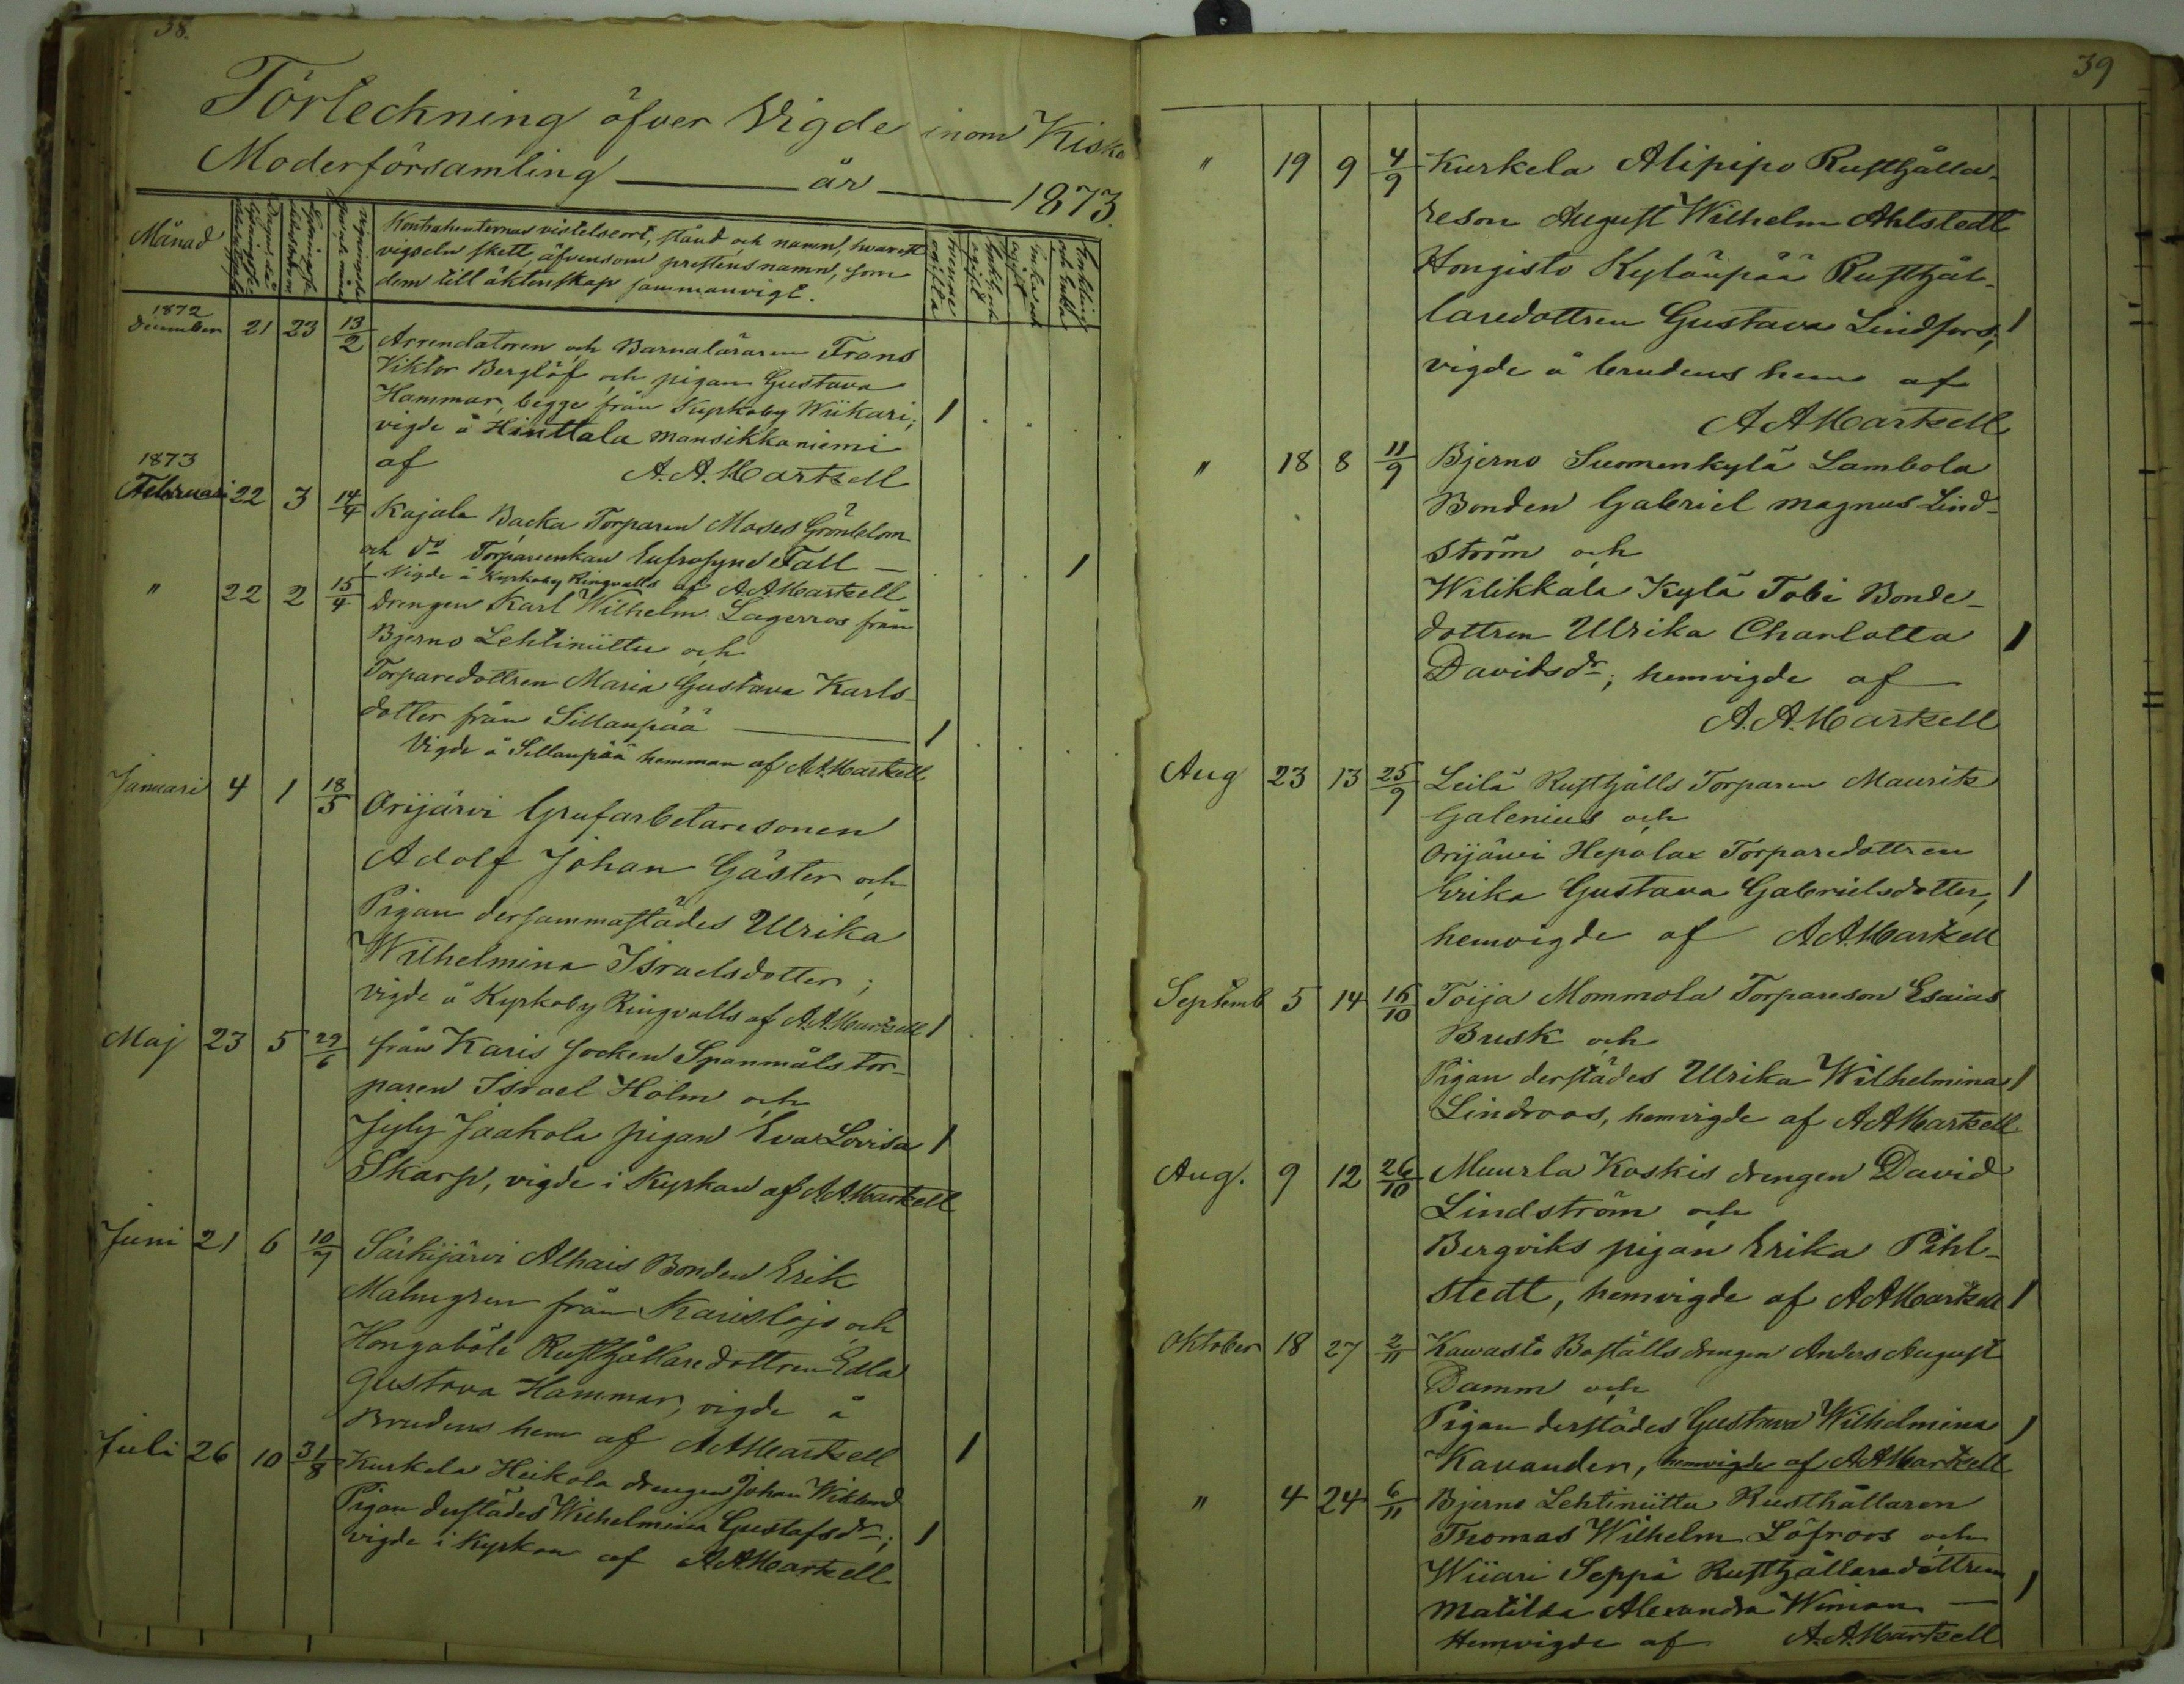 38.
Förteckning öfver Vigde inom Kisko
Moderförsamling — år — 1873.
Månad
Kontrahenternas vistelseort, stånd och namn, hvarest
vigseln skett, äfvensom prestens namn, som
dem till äktenskap sammanvigt.
1872
December 21 23 13/2 Arrendatoren och Barnaläraren Frans
Viktor Berglöf och pigan Gustava
Hammar, begge från Kyrkoby Wiikari;
vigde å Hinttala Mansikkaniemi
af A. A. Martzell
1873
Februari 22 3 14/4 Kajala Backa Torparen Moses Grönblom
och do Torpareenkan Eufrosyne Fall —
Vigde å Kyrkoby Ringvalls af A A Martzell
" 22 2 15/4 Drengen Karl Wilhelm Lagerros från
Bjerno Lehtiniittu och
Torparedottren Maria Gustava Karls-
dotter från Sillanpää —
Vigde å Sillanpää hemman af A A Martzell
Januari 4 1 18/5 Orijärvi Grufarbetaresonen
Adolf Johan Gäster och
Pigan dersammastädes Ulrika
Wilhelmina Israelsdotter;
vigde å Kyrkoby Ringvalls af A. A. Martzell
Maj 23 5 29/6 från Karis Socken Spanmåls tor-
paren Israel Holm och
Jyly Jaakola pigan Eva Lovisa
Skarp, vigde i Kyrkan af A A Martzell
Juni 21 6 10/7 Särkijärvi Alhais Bonden Erik
Malmgren från Karislojo och
Hongaböle Rusthållaredottren Edla
Gustava Hammar, vigde å
Brudens hem af A A Martzell
Juli 26 10 31/8 Kurkela Heikola drengen Johan Wiklund
Pigan derstädes Wilhelmina Gustafsdr;
vigde i Kyrkan af A A Martzell
39
" 19 9 4/9 Kurkela Alipipo Rusthålla-
reson August Wilhelm Ahlstedt
Hongisto Kylänpää Rusthål-
laredottren Gustava Lindfors;
vigde å brudens hem af
A A Martzell
" 18 8 11/9 Bjerno Suomenkylä Lambola
Bonden Gabriel Magnus Lind-
ström och
Wilikkala Kylä Tobi Bonde-
dottren Ulrika Charlotta
Davidsdr; hemvigde af
A. A. Martzell
Aug 23 13 25/9 Leilä Rusthålls Torparen Mauritz
Galenius och
Orijärvi Hepolax Torparedottren
Erika Gustava Gabrielsdotter,
hemvigde af A A Martzell
Septemb 5 14 16/10 Toija Mommola Torpareson Esaias
Busk och
Pigan derstädes Ulrika Wilhelmina
Lindroos, hemvigde af A A Martzell
Aug. 9 12 26/10 Muurla Koskis drengen David
Lindström och
Bergviks pigan Erika Pihl-
stedt, hemvigde af A A Martzell
Oktober 18 27 2/11 Kawasto Boställs drengen Anders August
Damm och
Pigan derstädes Gustava Wilhelmina
Kavander, hemvigde af A A Martzell
" 4 24 6/11 Bjerno Lehtiniittu Rusthållaren
Thomas Wilhelm Löfroos och
Wiiari Seppä Rusthållaredottren
Matilda Alexandra Wiman —
Hemvigde af A. A. Martzell